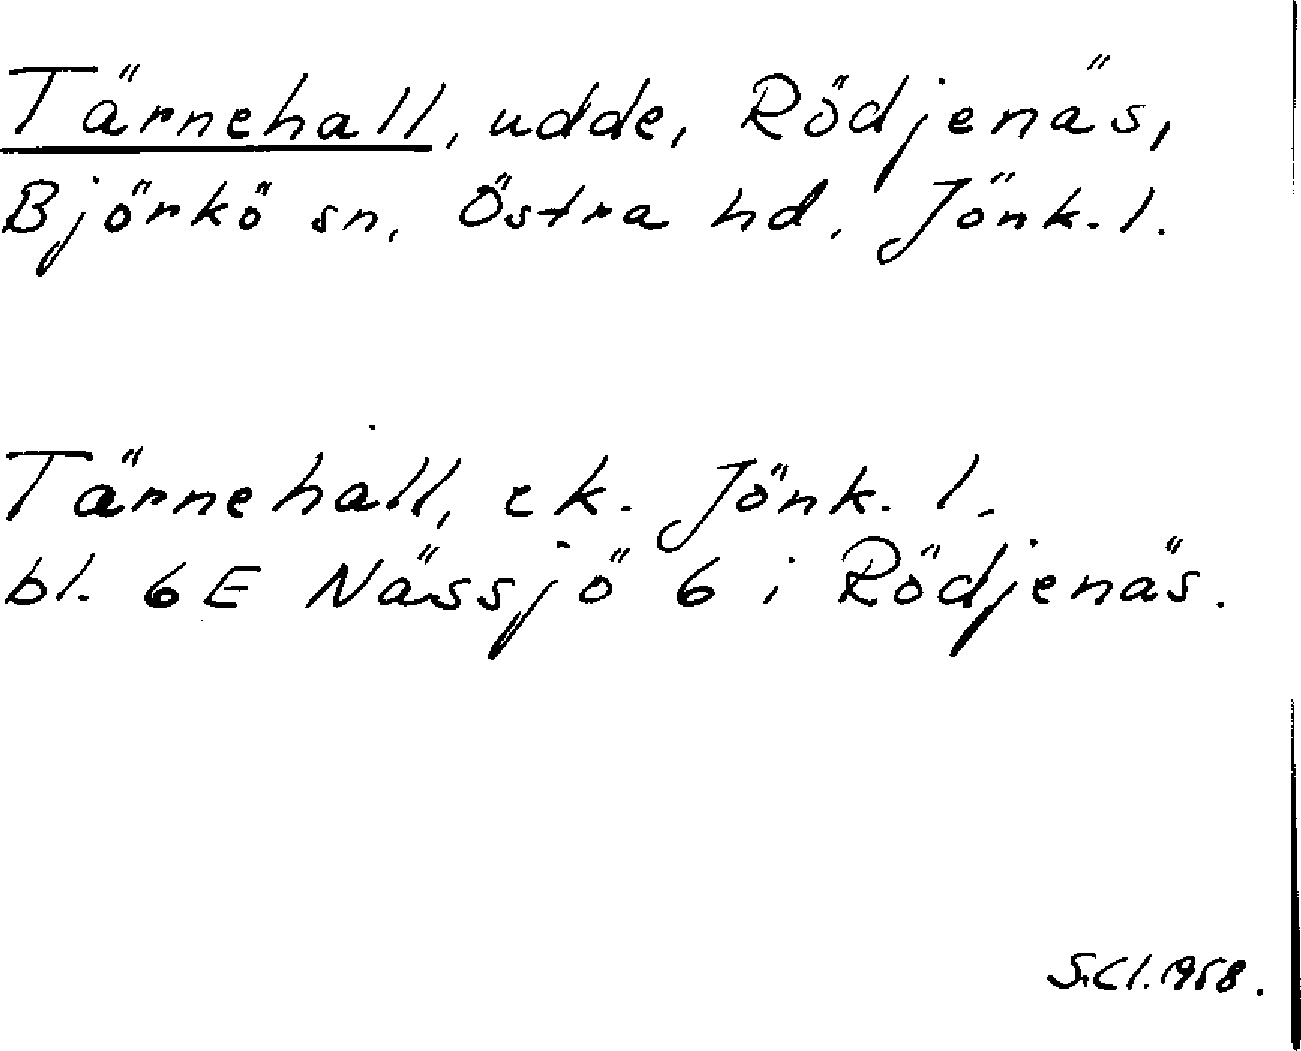 Tärnehall, udde, Rödjenäs,
Björkö sn, Östra hd, Jönk. l.
Tärnehall, ek. Jönk. l.
bl. 6E Nässjö 6 i Rödjenäs.
S.Cl. 1958.